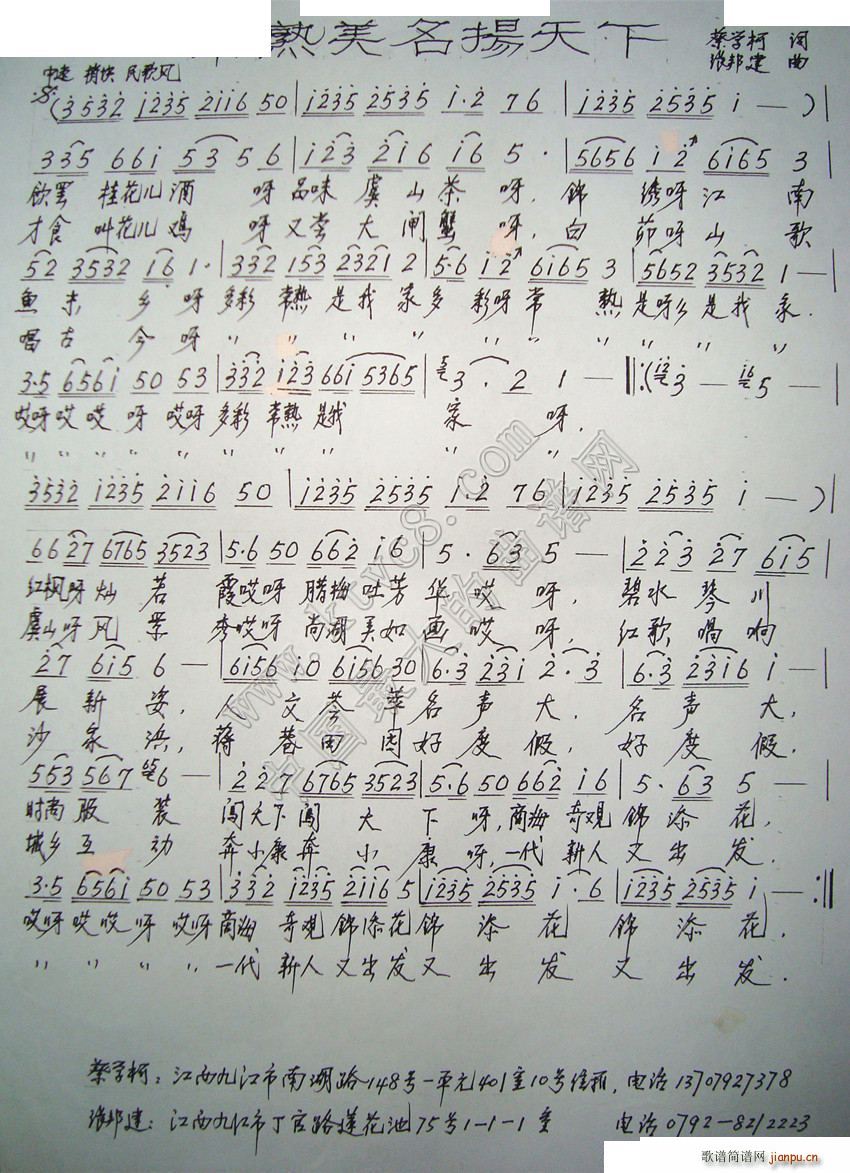 熟美名揚天下
蔡学柯 词
张邦建 曲
中速 稍快 民歌风
(3532 1235 2116 50 | 1235 2535 1·2 76 | 1235 2535 1 — )
335 661 53 5 6 | 123 216 16 5· | 5656 12 6165 3
饮罢 桂花儿酒 呀品味 虞山茶呀,锦 绣呀江 南
才食 叫花儿鸡 呀又尝 大闸蟹呀,白 茆呀山 歌
52 3532 16 1· | 332 153 2321 2 | 5·6 12 6165 3 | 5652 3532 1 —
鱼米 乡呀 多彩 常熟 是我 家多 彩呀常 熟 是呀么是我 家.
唱古 今呀 〃 〃 〃 〃 〃 〃 〃 〃 〃 〃
3·5 6561 50 53 | 332 123 661 5365 | 3· 2 1 — :(3 — 5 —
哎呀哎 哎 呀 哎呀 多彩 常熟 是我 家 呀.
〃 〃 〃 〃 〃 〃 〃 〃 〃 〃
3532 1235 2116 50 | 1235 2535 1·2 76 | 1235 2535 1 — )
66 27 6765 3523 | 5·6 50 662 16 | 5· 63 5 — | 2 23 27 615
红枫呀灿 若 霞哎呀 腊梅 吐芳 华 哎 呀, 碧水 琴川
虞山呀风 景 秀哎呀 尚湖 美如 画 哎 呀, 红歌 唱响
27 615 6 — | 6156 10 6156 30 | 6·3 231 2· 3 | 6·3 2316 1 —
展 新 姿, 人 文 荟 萃 名 声 大, 名 声 大,
沙 家 浜, 蒋 巷 田 园 好 度 假, 好 度 假.
553 567 6 — | 2 27 6765 3523 | 5·6 50 662 16 | 5· 63 5 —
时尚 服 装 闯天下 闯 大 下 呀,商海 奇观 锦 添 花,
城乡 互 动 奔小康 奔 小 康 呀,一代 新人 又 出 发.
3·5 6561 50 53 | 332 1235 2116 5 | 1235 2535 1· 6 | 1235 2535 1 — :
哎呀 哎哎 呀 哎呀 商海 奇观 锦添花 锦 添 花 锦 添 花,
〃 〃 〃 〃 〃 一代 新人 又出发 又 出 发 又 出 发.
www.ktvc8.com
中国最大的曲谱网
蔡学柯: 江西九江市南湖路148号一单元401室10号信箱, 电话 13707927378
张邦建: 江西九江市丁官路莲花池75号1-1-1室 电话 0792-8212223
歌谱简谱网
jianpu.cn